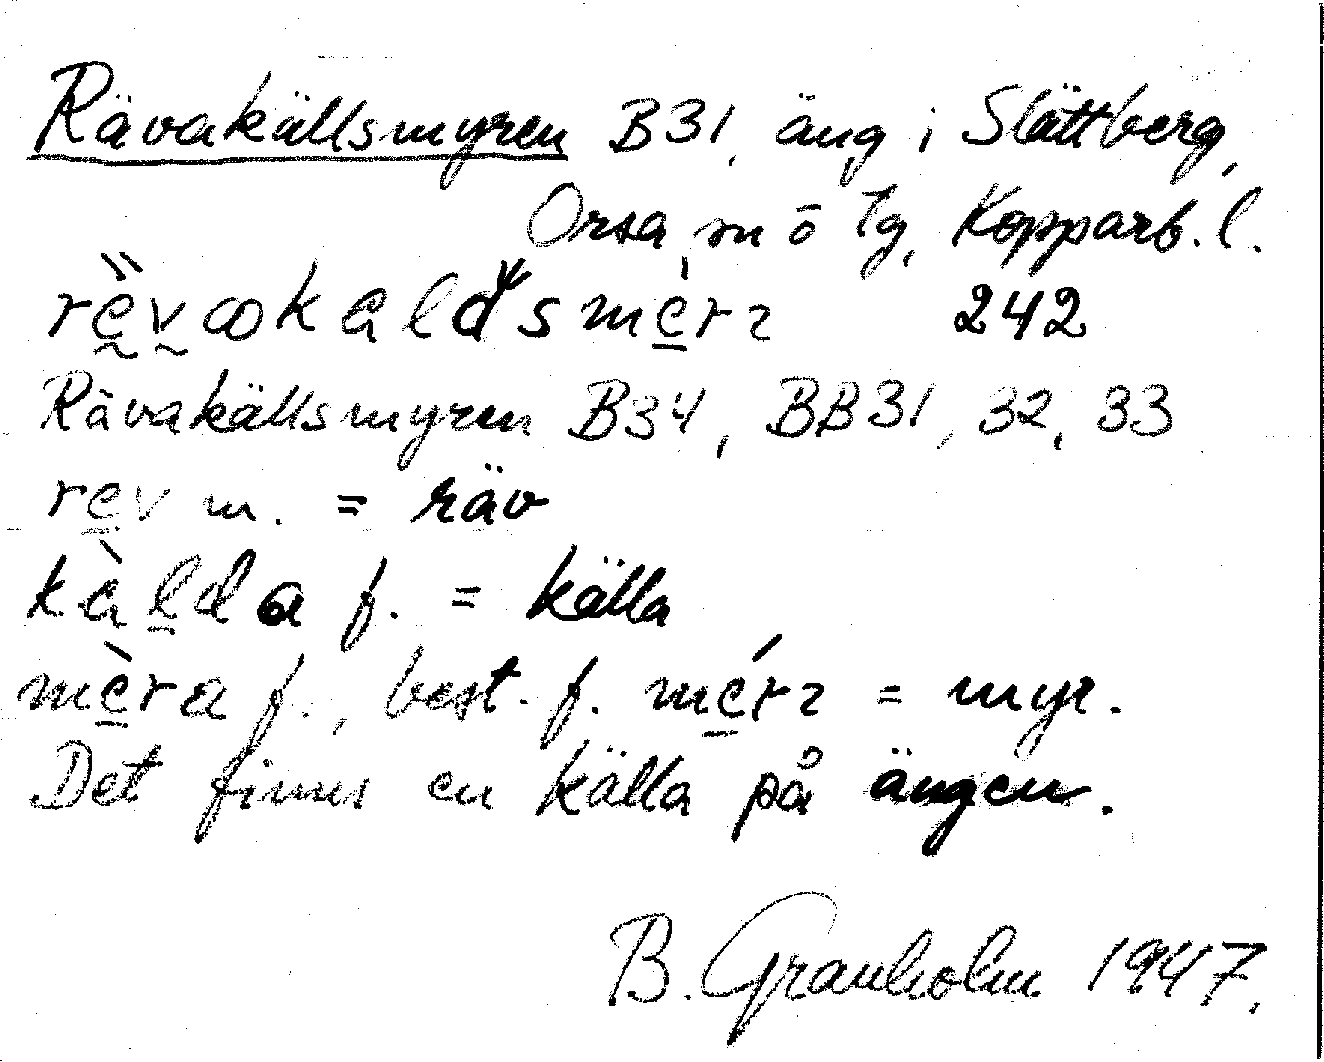 Rävakällsmyren B31, äng i Slättberg,
Orsa, m ō Tg, Kopparb. l.
242
Rävakällsmyren B34, BB31, 32, 33
rev m. = räv
kàlda f. = källa
mèra f., best. f. = myr.
Det finns en källa på ängen.
B. Granholm 1947.